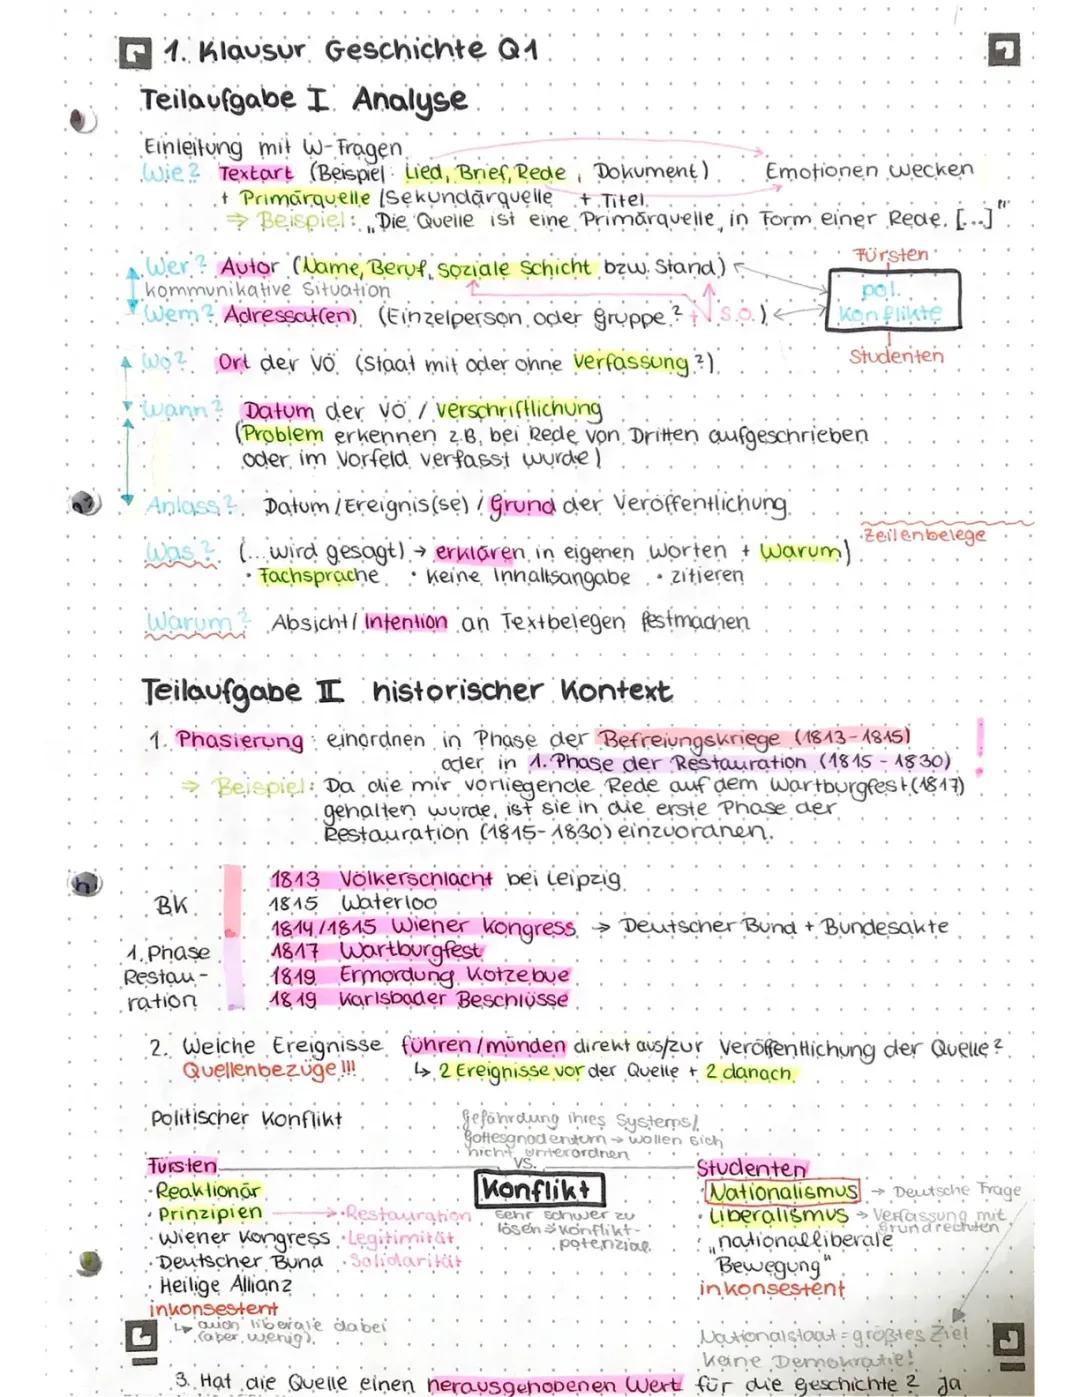 1. Klausur Geschichte Q1
Teilaufgabe I Analyse
Einleitung mit W-Fragen
Wie? Textart (Beispiel: Lied, Brief, Rede, Dokument) Emotionen wecken
+ Primärquelle / Sekundärquelle + Titel
⇒ Beispiel: „Die Quelle ist eine Primärquelle, in Form einer Rede. [...]"
Fürsten
Wer? Autor (Name, Beruf, soziale Schicht bzw. Stand)
kommunikative Situation
pol.
Wem? Adressat(en) (Einzelperson oder Gruppe? + s.o.)
Konflikte
Studenten
Wo? Ort der VÖ (Staat mit oder ohne Verfassung?)
Wann? Datum der VÖ / Verschriftlichung
(Problem erkennen z.B. bei Rede von Dritten aufgeschrieben
oder im Vorfeld verfasst wurde)
Anlass? Datum / Ereignis(se) / Grund der Veröffentlichung
Zeilenbelege
Was? (...wird gesagt) → erklären in eigenen Worten + Warum)
· Fachsprache · keine Inhaltsangabe · zitieren
Warum? Absicht / Intention an Textbelegen festmachen
Teilaufgabe II historischer Kontext
1. Phasierung: einordnen in Phase der Befreiungskriege (1813-1815)
oder in 1. Phase der Restauration (1815 - 1830)
⇒ Beispiel: Da die mir vorliegende Rede auf dem Wartburgfest (1817)
gehalten wurde, ist sie in die erste Phase der
Restauration (1815-1830) einzuordnen.
1813 Völkerschlacht bei Leipzig
BK 1815 Waterloo
1814/1815 Wiener Kongress → Deutscher Bund + Bundesakte
1. Phase 1817 Wartburgfest
Restau- 1819 Ermordung Kotzebue
ration 1819 Karlsbader Beschlüsse
2. Welche Ereignisse führen/münden direkt aus/zur Veröffentlichung der Quelle?
Quellenbezüge!!! ↳ 2 Ereignisse vor der Quelle + 2 danach
Politischer Konflikt
Gefährdung ihres Systems/
Gottesgnadentum → wollen sich
nicht unterordnen
Fürsten vs. Studenten
· Reaktionär Konflikt · Nationalismus → Deutsche Frage
· Prinzipien → · Restauration sehr schwer zu · Liberalismus → Verfassung mit Grundrechten
· Wiener Kongress · Legitimität lösen ⇒ Konflikt- · „nationalliberale
· Deutscher Bund · Solidarität potenzial Bewegung"
· Heilige Allianz inkonsestent
inkonsestent
↳ auch liberale dabei
(aber wenig)
Nationalstaat = größtes Ziel
keine Demokratie!
3. Hat die Quelle einen herausgehobenen Wert für die Geschichte? Ja